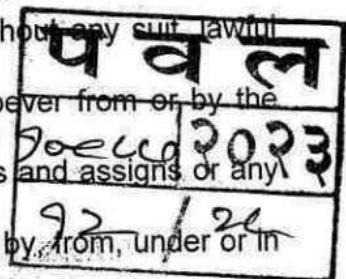 hout any suit, lawful
प व ल
oever from or by the
२०२३
s and assigns or any
१२ /
by, from, under or in